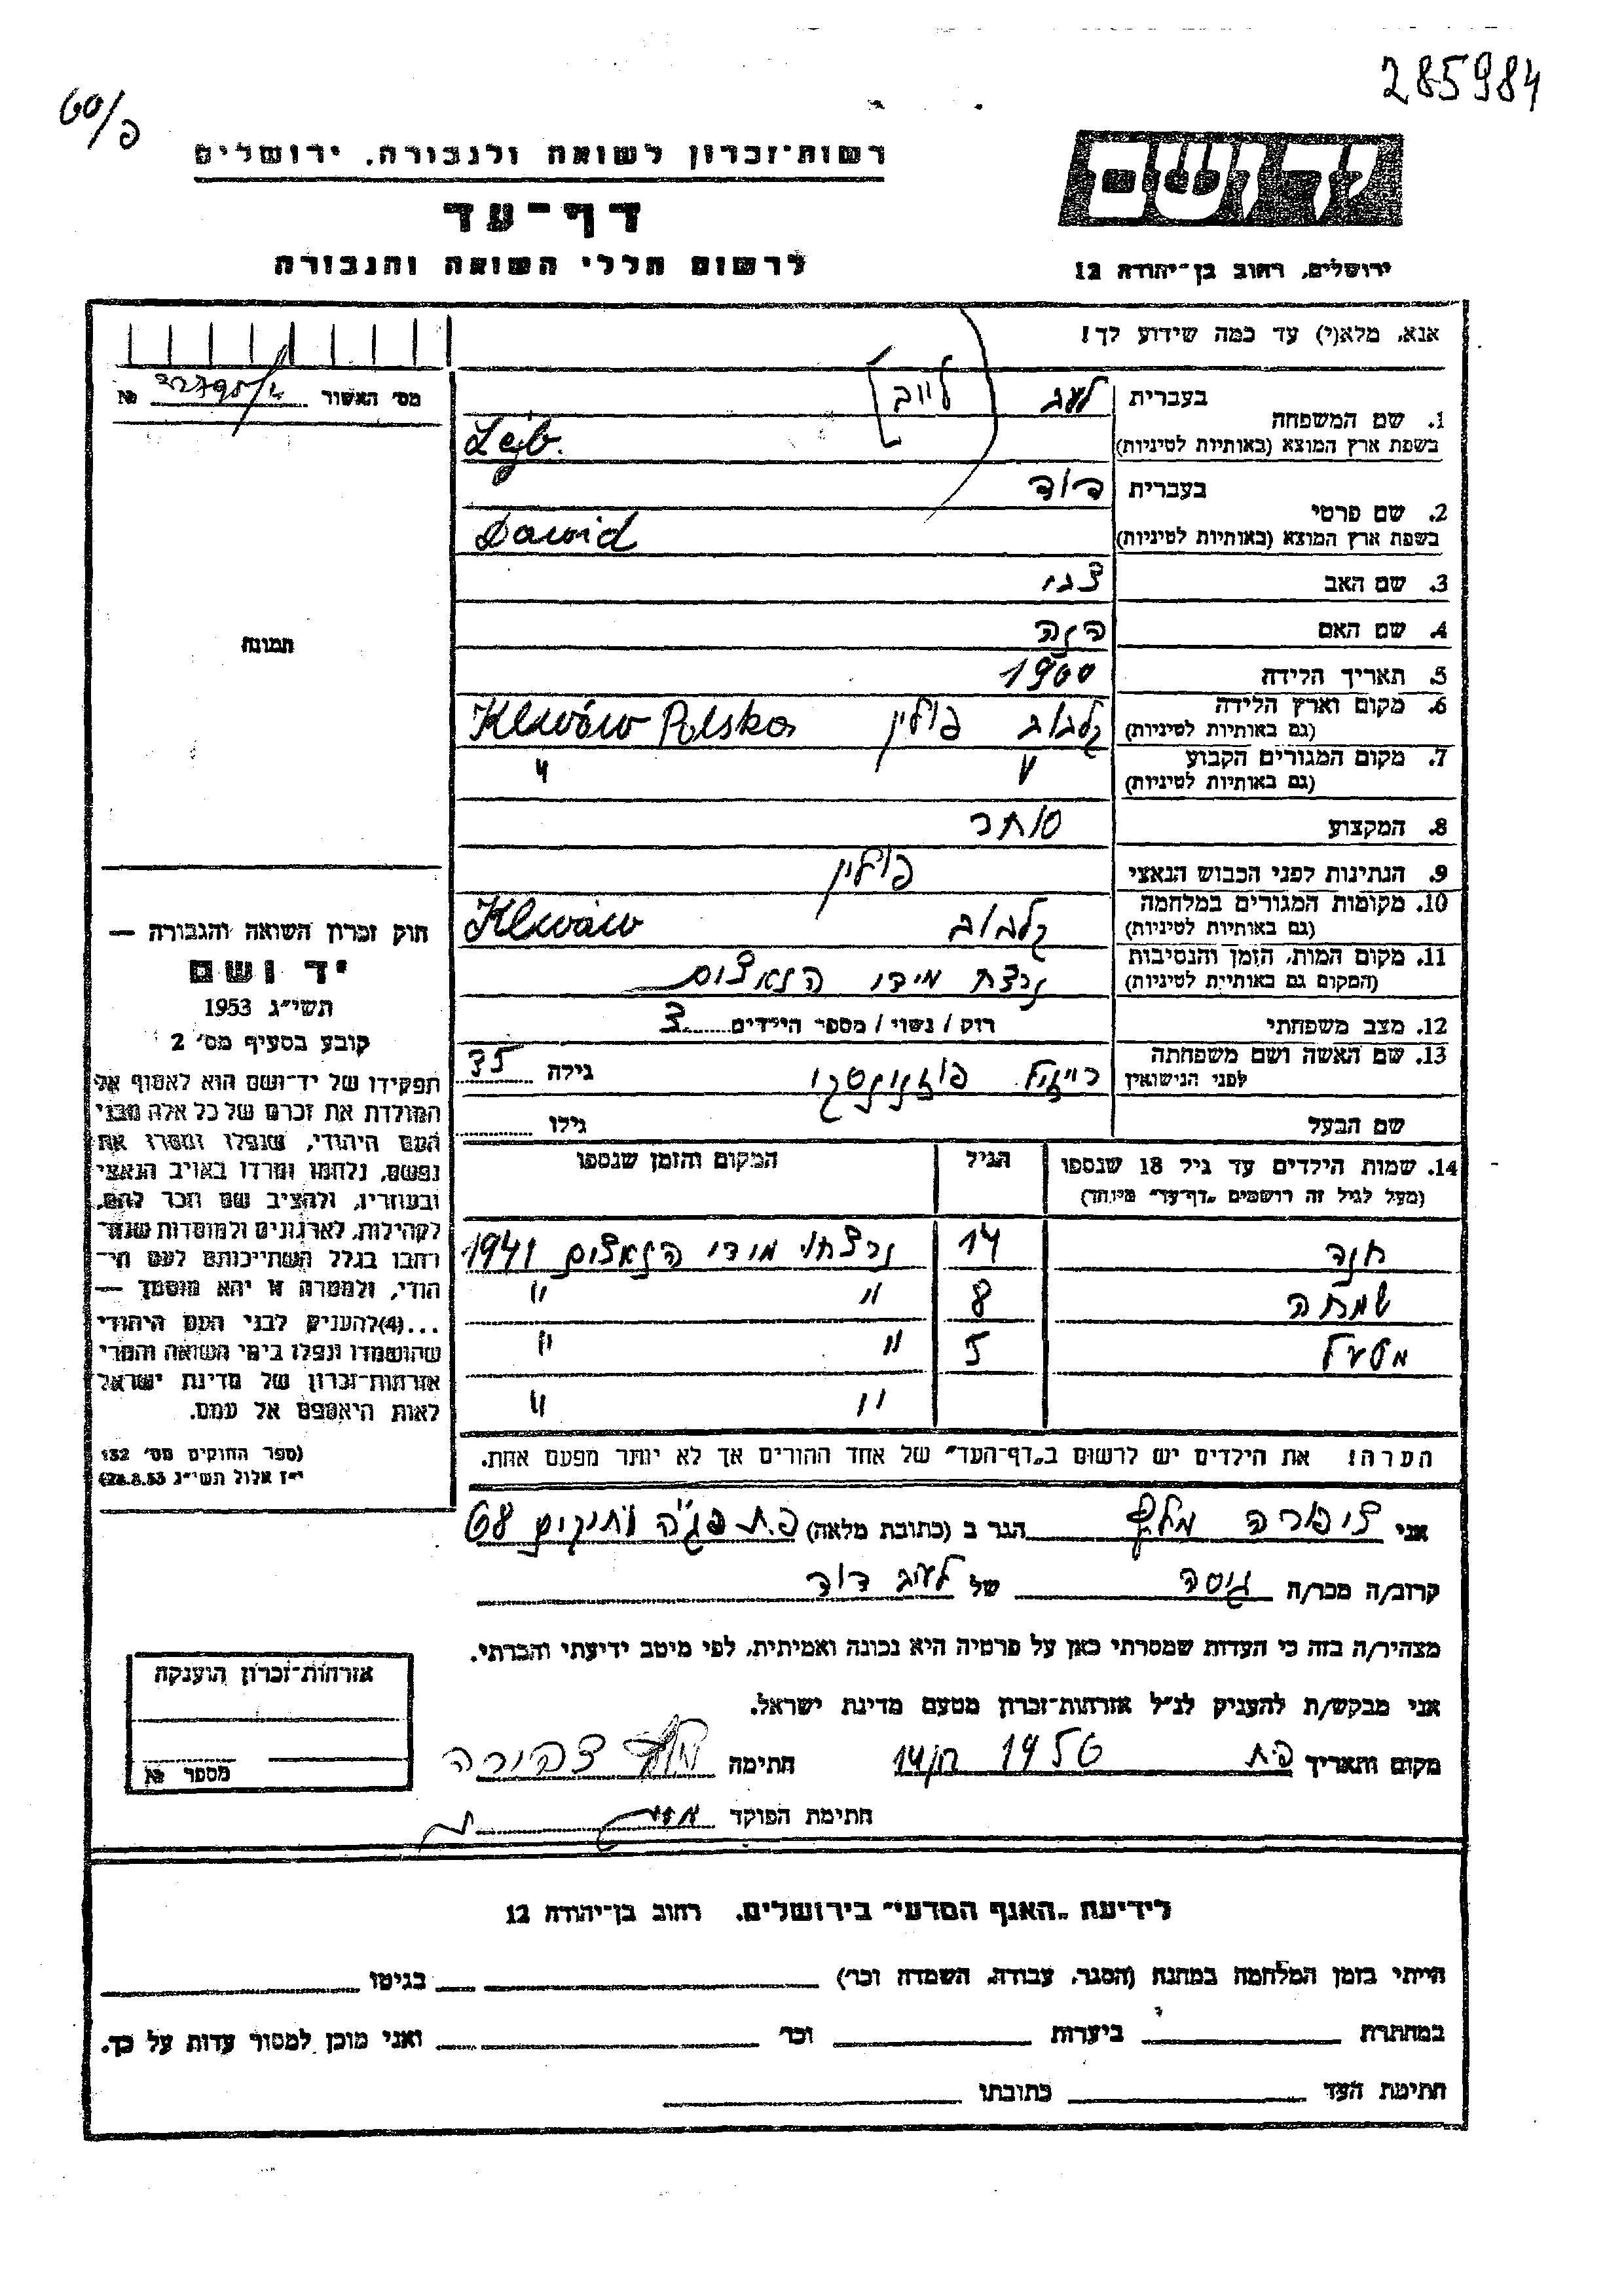 285984
60/פ
יד ושם
רשות-זכרון לשואה ולגבורה, ירושלים
דף-עד
לרשום חללי השואה והגבורה
ירושלים, רחוב בן-יהודה 12
אנא, מלא(י) עד כמה שידוע לך!
מס׳ האשור №
1. שם המשפחה
בעברית לעב [לייב]
בשפת ארץ המוצא (באותיות לטיניות) Lejb.
2. שם פרטי
בעברית דוד
בשפת ארץ המוצא (באותיות לטיניות) Dawid
3. שם האב צבי
4. שם האם
5. תאריך הלידה 1900
6. מקום וארץ הלידה (גם באותיות לטיניות) קלבוב פולין Klwów Polska
7. מקום המגורים הקבוע (גם באותיות לטיניות) " "
8. המקצוע סוחר
9. הנתינות לפני הכבוש הנאצי פולין
10. מקומות המגורים במלחמה (גם באותיות לטיניות) קלבוב Klwów
11. מקום המות, הזמן והנסיבות (המקום גם באותיות לטיניות) נרצח מידי הנאצים
12. מצב משפחתי רוק / נשוי / מספר הילדים 3
13. שם האשה ושם משפחתה לפני הנישואין גילה 35
שם הבעל גילו
14. שמות הילדים עד גיל 18 שנספו (מעל לגיל זה רושמים „דף-עד״ מיוחד) הגיל המקום והזמן שנספו
חנה 14 נרצחו מידי הנאצים 1941
שמחה 8 " "
5 " "
" "
הערה! את הילדים יש לרשום ב„דף-העד״ של אחד ההורים אך לא יותר מפעם אחת.
תמונה
חוק זכרון השואה והגבורה —
יד ושם
תשי״ג 1953
קובע בסעיף מס׳ 2
תפקידו של יד-ושם הוא לאסוף אל
המולדת את זכרם של כל אלה מבני
העם היהודי, שנפלו ומסרו את
נפשם, נלחמו ומרדו באויב הנאצי
ובעוזריו, ולהציב שם וזכר להם,
לקהילות, לארגונים ולמוסדות שנח־
רבו בגלל השתייכותם לעם הי־
הודי, ולמטרה זו יהא מוסמך —
...(4)להעניק לבני העם היהודי
שהושמדו ונפלו בימי השואה והמרי
אזרחות-זכרון של מדינת ישראל
לאות היאספם אל עמם.
(ספר החוקים מס׳ 132
י״ז אלול תשי״ג 28.8.53)
אני ציפורה מלץ הגר ב (כתובת מלאה) פ.ת פג״ה ותיקים 68
קרוב/ה מכר/ה גיסה של לעיב דוד
מצהיר/ה בזה כי העדות שמסרתי כאן על פרטיה היא נכונה ואמיתית, לפי מיטב ידיעתי והכרתי.
אני מבקש/ת להעניק לנ״ל אזרחות-זכרון מטעם מדינת ישראל.
מקום ותאריך פ.ת חתימה ציפורה
חתימת הפוקד
אזרחות-זכרון הוענקה
מספר №
לידיעת „האגף המדעי״ בירושלים. רחוב בן-יהודה 12
הייתי בזמן המלחמה במחנה (הסגר, עבודה, השמדה וכר׳) בגיטו
במחתרת ביערות וכר׳ ואני מוכן למסור עדות על כך.
חתימת העד כתובתו